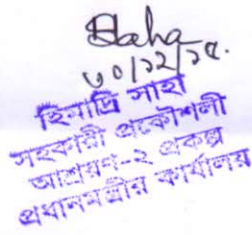 Saha
৩০/১২/১৫.
হিমাদ্রি সাহা
সহকারী প্রকৌশলী
আশ্রয়ণ-২ প্রকল্প
প্রধানমন্ত্রীর কার্যালয়